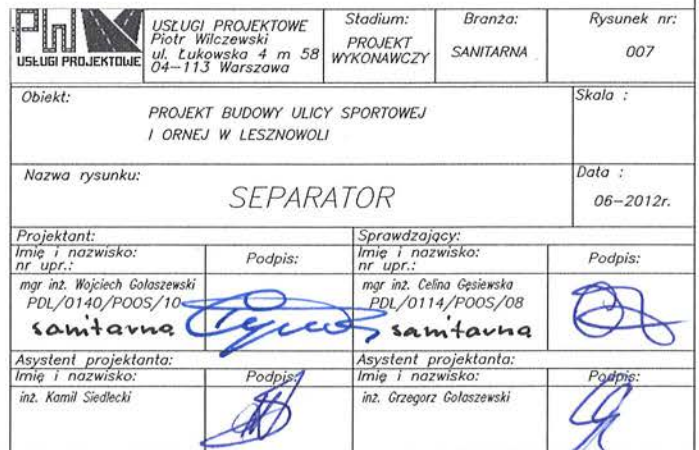 PW
USŁUGI PROJEKTOWE
USŁUGI PROJEKTOWE
Piotr Wilczewski
ul. Łukowska 4 m 58
04-113 Warszawa
Stadium:
PROJEKT
WYKONAWCZY
Branża:
SANITARNA
Rysunek nr:
007
Obiekt:
PROJEKT BUDOWY ULICY SPORTOWEJ
I ORNEJ W LESZNOWOLI
Skala :
Nazwa rysunku:
SEPARATOR
Data :
06-2012r.
Projektant:
Imię i nazwisko:
nr upr.:
Podpis:
mgr inż. Wojciech Gołaszewski
PDL/0140/POOS/10
sanitarna
Sprawdzający:
Imię i nazwisko:
nr upr.:
Podpis:
mgr inż. Celina Gęsiewska
PDL/0114/POOS/08
sanitarna
Asystent projektanta:
Imię i nazwisko:
Podpis:
inż. Kamil Siedlecki
Asystent projektanta:
Imię i nazwisko:
Podpis:
inż. Grzegorz Gołaszewski